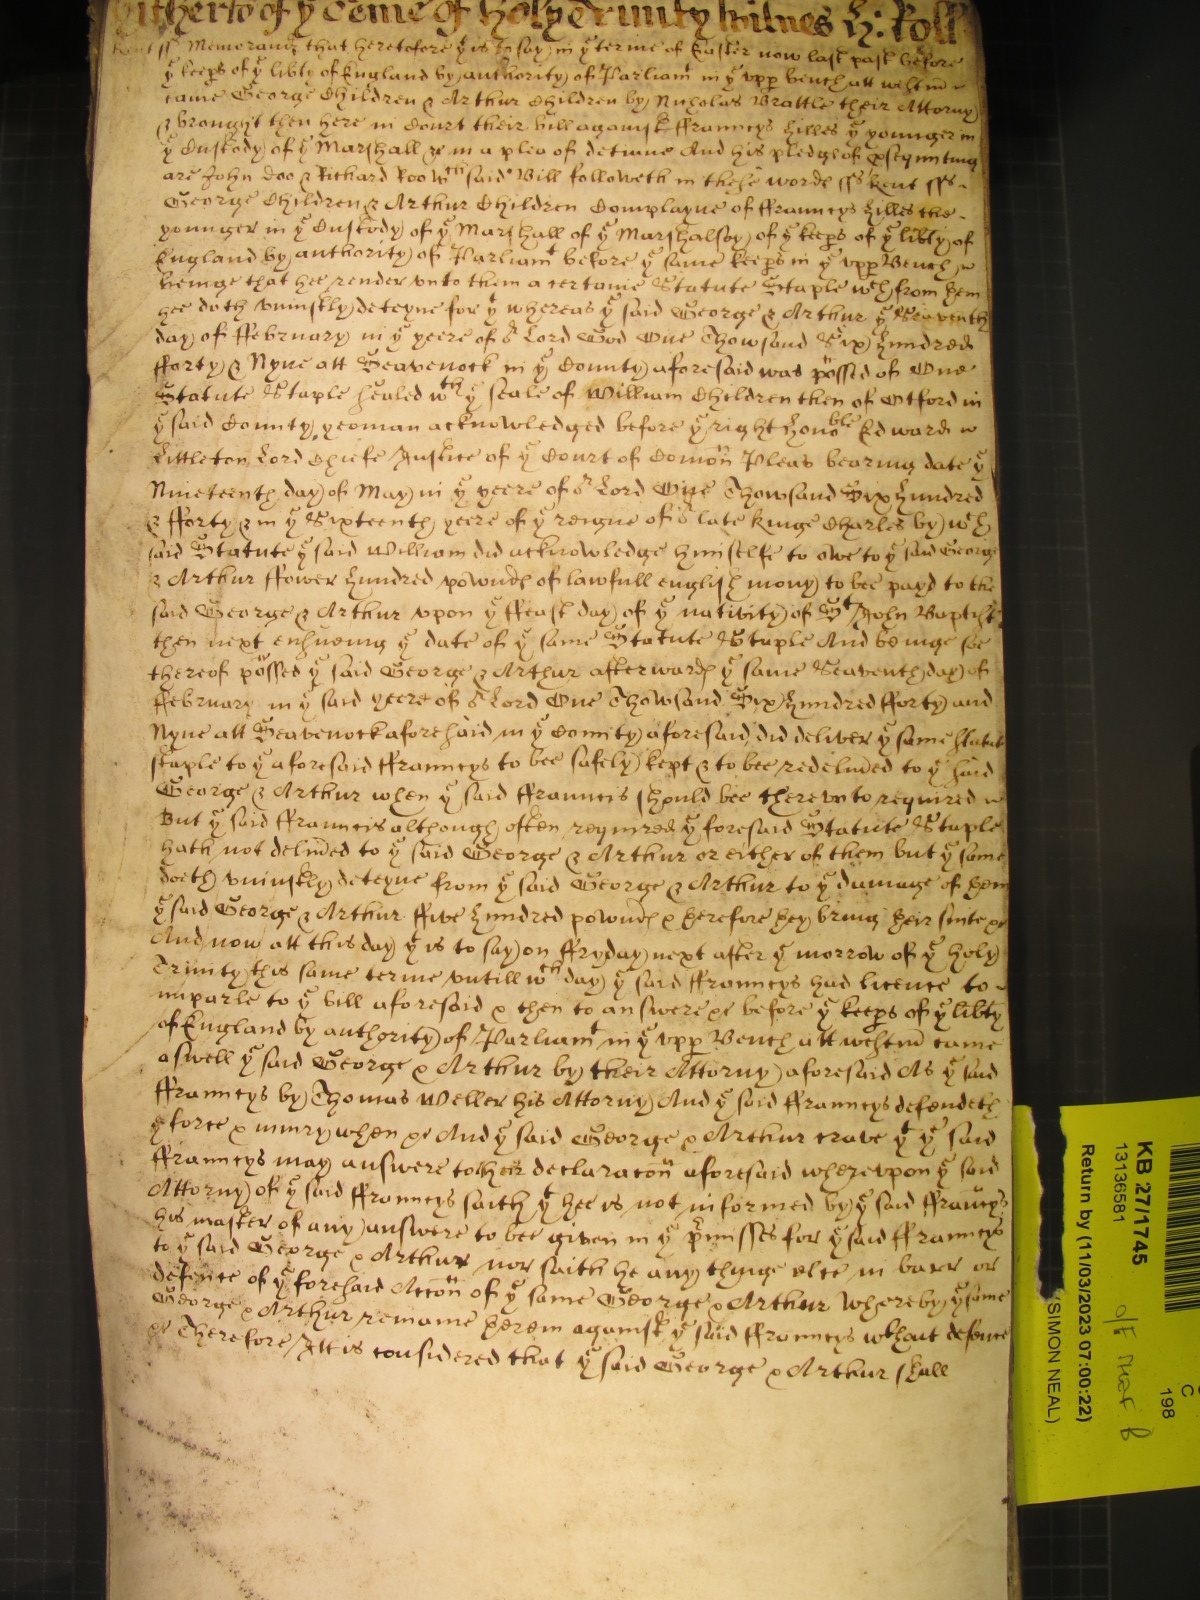 hitherto of ye terme of Holy Trinity Witnes H: Roll
Kent ss Memorand that heretofore yt is to say in ye terme of Easter now last past before
ye keeps of ye libty of England by authority of Parliamt in ye vpp bench att Westm
came George Children & Arthur Children by Nicholas Brattle their Attorny
& brought then here in Court their bill against ffrauncys Hilles ye younger in
ye Custody of ye Marshall &c in a plea of detinue And his pledges of psequuting
are John Doo & Richard Roo wch said Bill followeth in these words ss Kent ss
George Children & Arthur Children Complayne of ffrauncys Hilles the
younger in ye Custody of ye Marshall of ye Marshalsey of ye keeps of ye libty of
England by authority of Parliamt before ye same keeps in ye vpp Bench
beinge that hee render vnto them a certaine Statute Staple wch from hem
hee doth vniustly deteyne for yt whereas ye said George & Arthur ye Seaventh
day of ffebruary in ye yeere of or Lord God One Thowsand Six Hundred
fforty & Nyne att Seavenock in ye County aforesaid was possed of One
Statute Staple sealed wth ye seale of William Children then of Otford in
ye said County yeoman acknowledged before ye right Honoble Edward
Littleton Lord Chiefe Justice of ye Court of Comon Pleas bearing date ye
Nineteenth day of May in ye yeere of or Lord One Thowsand Six Hundred
& fforty & in ye Sixteenth yeere of ye reigne of or late Kinge Charles by wch
said Statute ye said William did acknowledge himselfe to owe to ye said George
& Arthur ffower Hundred pownds of lawfull english mony to bee payd to the
said George & Arthur vpon ye ffeast day of ye nativity of St John Baptist
then next ensueing ye date of ye same Statute Staple And beinge soe
thereof possed ye said George & Arthur afterwards ye same Seaventh day of
ffebruary in ye said yeere of or Lord One Thowsand Six Hundred fforty and
Nyne att Seavenock aforesaid in ye County aforesaid did deliver ye same statute
staple to ye aforesaid ffrauncys to bee safely kept & to bee redelivied to ye said
George & Arthur when ye said ffrauncis should bee therevnto required
But ye said ffrauncis although often required ye foresaid Statute Staple
hath not delivied to ye said George & Arthur or either of them but ye same
doeth vniustly deteyne from ye said George & Arthur to ye damage of hem
ye said George & Arthur ffive Hundred pownds & herefore hey bring heir suite &c
And now att this day yt is to say on ffryday next after ye morrow of ye holy
Trinity this same terme vntill wch day ye said ffrauncys had licence to
imparle to ye bill aforesaid & then to answere &c before ye keeps of ye libty
of England by authority of Parliamt in ye vpp Bench att westm came
aswell ye said George & Arthur by their Attorny aforesaid As ye said
ffrauncys by Thomas Weller his Attorny And ye said ffrauncys defendeth
ye force & iniury when &c And ye said George & Arthur crave yt ye said
ffrauncys may answere to their declaracon aforesaid wherevpon ye said
Attorny of ye said ffrauncys saith yt hee is not informed by ye said ffrauncys
his master of any answere to bee given in ye pmisses for ye said ffrauncys
to ye said George & Arthur nor saith he any thinge else in barr or
defence of ye foresaid Accon of ye same George & Arthur whereby ye same
George & Arthur remaine herein against ye said ffrauncys wthout defence
&c Therefore Itt is considered that ye said George & Arthur shall
KB 27/1745
13136581
Return by (11/03/2023 07:00:22)
(SIMON NEAL)
C
198